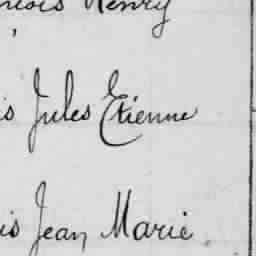 Henry
is Jules Etienne
is Jean Marie